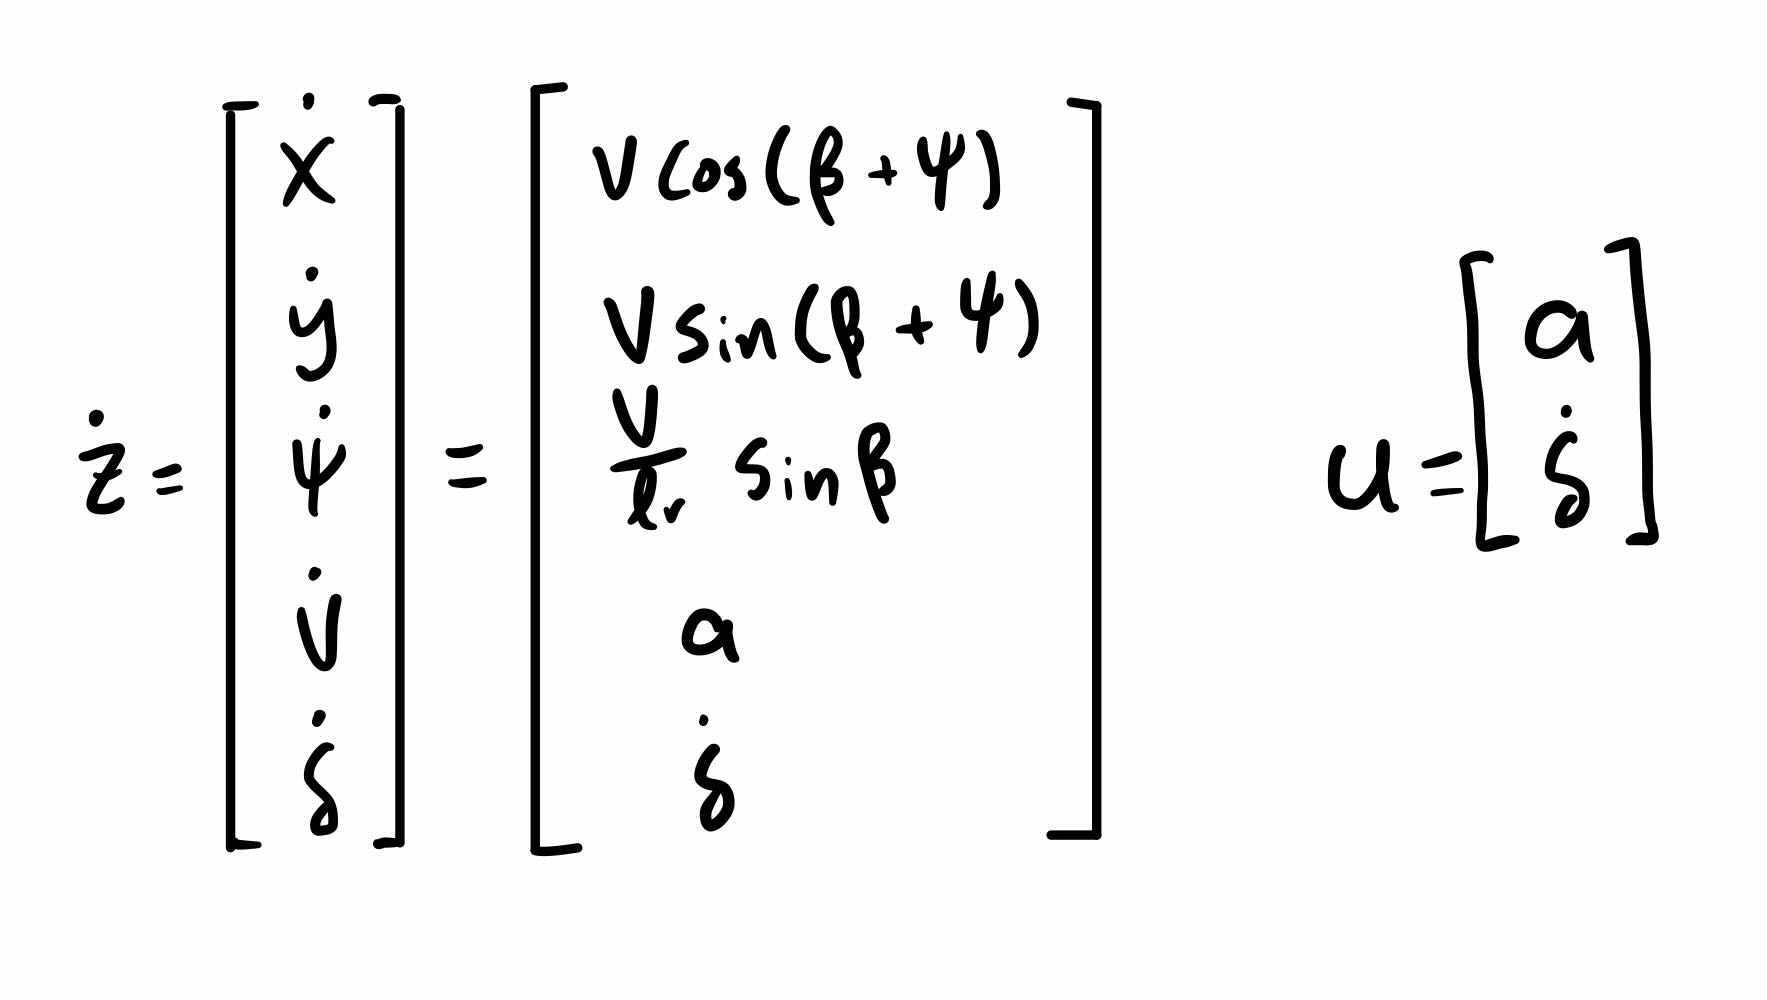 ż = [ẋ ẏ ψ̇ v̇ δ̇] = [v cos(β + ψ) v sin(β + ψ) v/lr sin β a δ̇]
u = [a δ̇]